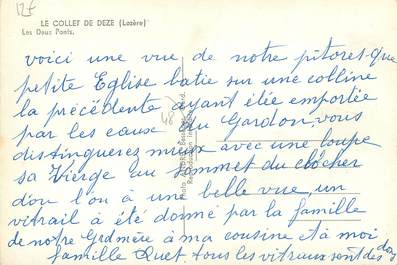 12f
LE COLLET DE DEZE (Lozère)
Les Deux Ponts.
voici une vue de notre pitores-que
petite Eglise batie sur une colline
la précédente ayant étée emportée
par les eaux du Gardon, vous
distinguerez mieux avec une loupe
sa Vierge au sommet du clocher
d'ou l'on à une belle vue, un
vitrail à été donné par la famille
de notre Grdmère à ma cousine et à moi
famille Quet tous les vitraux sont des
don
48